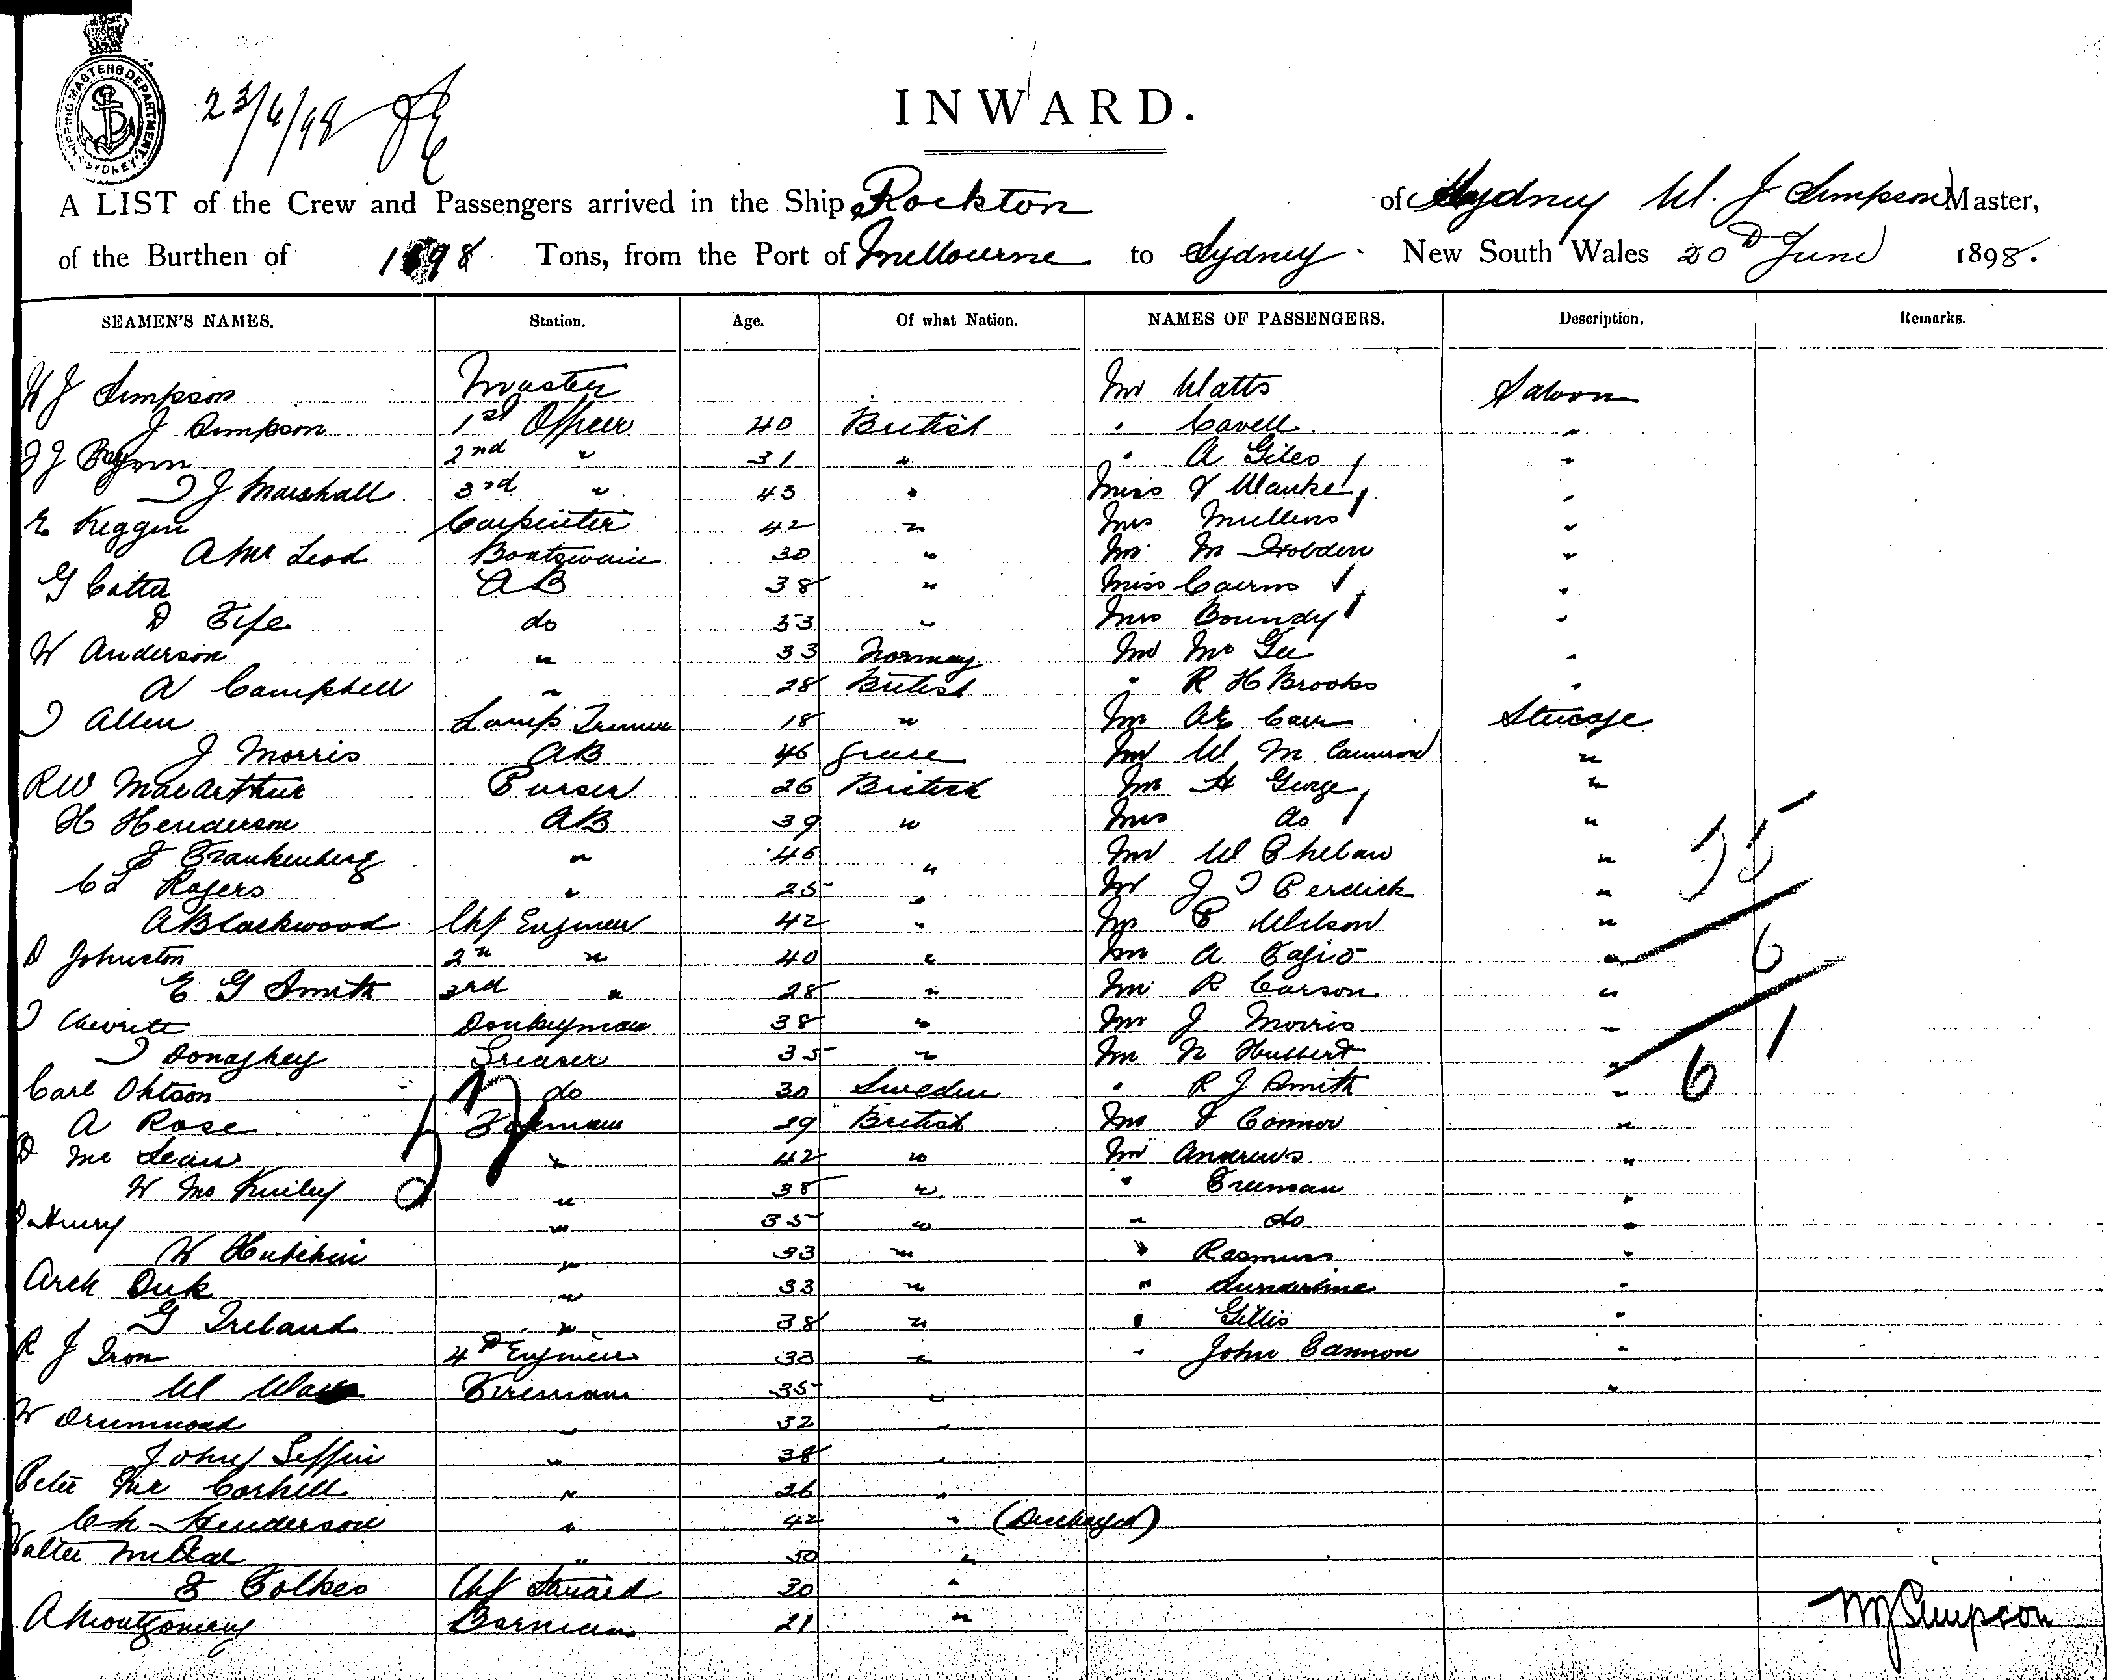 SHIPPING MASTERS DEPARTMENT. SYDNEY
23/6/98
INWARD.
A LIST of the Crew and Passengers arrived in the Ship Rockton of Sydney W. J Simpson Master,
of the Burthen of 1898 Tons, from the Port of Melbourne to Sydney New South Wales 20th June 1898.
SEAMEN'S NAMES. Station. Age. Of what Nation. NAMES OF PASSENGERS. Description. Remarks.
W J Simpson Master Mr Watts Saloon
J Simpson 1st Officer 40 British " Cavell "
J J 2nd " 31 " " A Giles "
J Marshall 3rd " 43 " Miss Manke "
E Keggin Carpenter 42 " Mrs Mullens "
A Mc Leod Boatswain 30 " Mr M "
G Catta A B 38 " Miss Cairns "
D Fife do 33 " Mrs Boundy "
W Anderson " 33 Norway Mr Mc Gee "
A Campbell " 28 British " R H Brooks "
T Allen Lamp Trimmer 18 " Mr A E Carr Steerage
J Morris AB 46 Greece Mr W M Cameron "
R W MacArthur Purser 26 British Mr H George "
H Henderson AB 39 " Mrs do "
F Frankenberg " 46 " Mr W Phelan "
C L Rogers " 25 " Mr J T Perdick "
A Blackwood Chf Engineer 42 " Mr P Wilson "
D Johnston 2nd " 40 " Mr A "
E G Smith 3rd " 28 " Mr R Carson "
T Donkeyman 38 " Mr J Morris "
T Donaghey Greaser 35 " Mr N Hubbert "
Carl Ohlson do 30 Sweden " R J Smith "
A Rose Fireman 29 British Mr Connor "
D Mc Lean " 42 " Mr Andrews "
W Mc Kinley " 38 " " Freeman "
Henry " 35 " " do "
W Hutchin " 33 " " Rasmuss "
Arch Duk " 33 " " "
G Ireland " 38 " " Gillis "
R J Iron 4th Engineer 33 " " John Cannon "
W Fireman 35 " "
W Drummond " 32 "
John Leffin " 38 "
Peter Mc Corkell " 26 "
Ch Henderson " 42 " (Discharged)
Walter " 50 "
E Folkes Chf Steward 30 "
A Montgomery Barman 21 "
35
6
1
6
W J Simpson